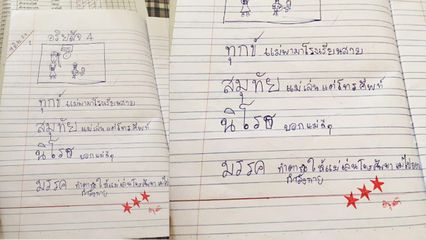 อริยสัจ 4
ทุกข์ แม่พามาโรงเรียนสาย
สมุทัย แม่เล่นแต่โทรศัพท์
นิโรธ บอกแม่ดีๆ
มรรค ทำตาดุ ให้แม่เล่นโทรศัพท์
ทุกข์ แม่พามาโรงเรียนสาย
สมุทัย แม่เล่นแต่โทรศัพท์
นิโรธ บอกแม่ดีๆ
มรรค ทำตาดุ ให้แม่เล่นโทรศัพท์